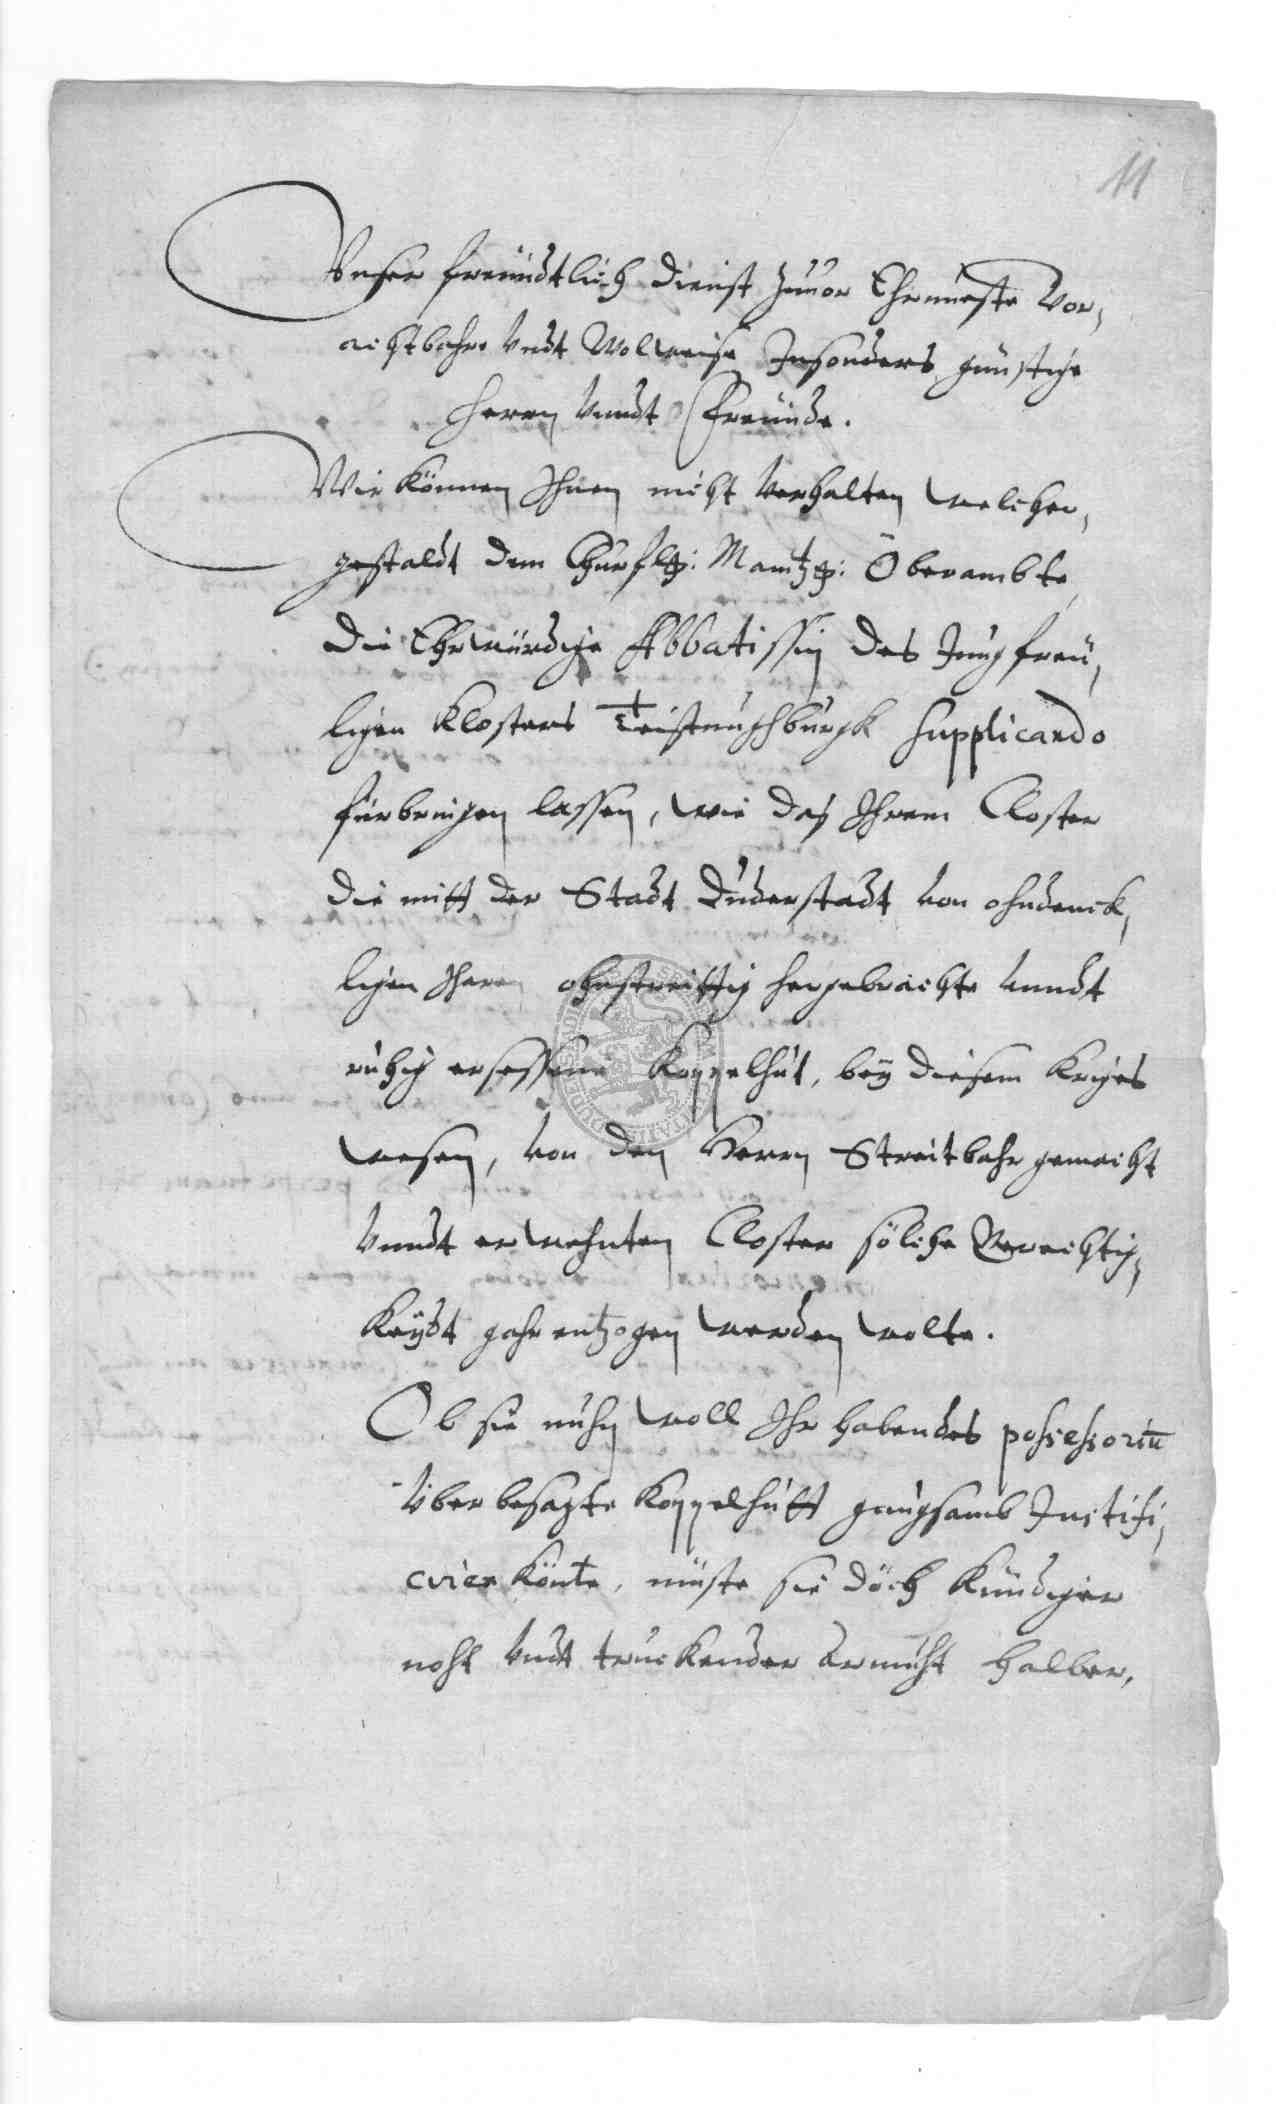 11
Vnser freündtlich dienst zuuor Ehrnueste Vor,
achtbahre Vndt Wolweise Insonders günstige
Herrn Vnndt Freünde.
Wir können Ihnen nicht Verhalten welcher,
gestaldt dem Churfl: Maintz: Oberambte
die Ehrwürdige Abbatissin des Jungfreu,
lichen Klosters Teistungßburgk supplicando
fürbringen lassen, wie daß Ihrem Closter
die mitt der Stadt Duderstadt von ohndenck,
lichen Jharen ohnstreittig hergebrachte vnndt
ruhig ersessene Koppelhut, bey diesem Kriges
wesen, von den Herrn Streitbahr gemacht
Vnndt erwehnten Closter solche Gerechtig,
keydt gahr entzogen werden wolte.
Ob sie nuhn woll Ihr habendes possessoriū
Vber besagte Koppelhutt gnugsamb Justifi,
cirer könte, müste sie doch kündiger
noht Vndt truckender armuht halber,